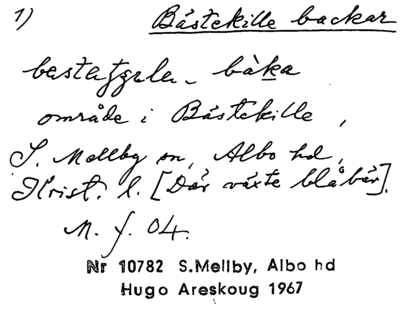 1) Båstekille backar
bästatjzla - båka
område i Båstekille,
S. Mellby sn, Albo hd,
Krist. l. [Där växte blåbär].
M. f. 04.
Nr 10782 S.Mellby, Albo hd
Hugo Areskoug 1967